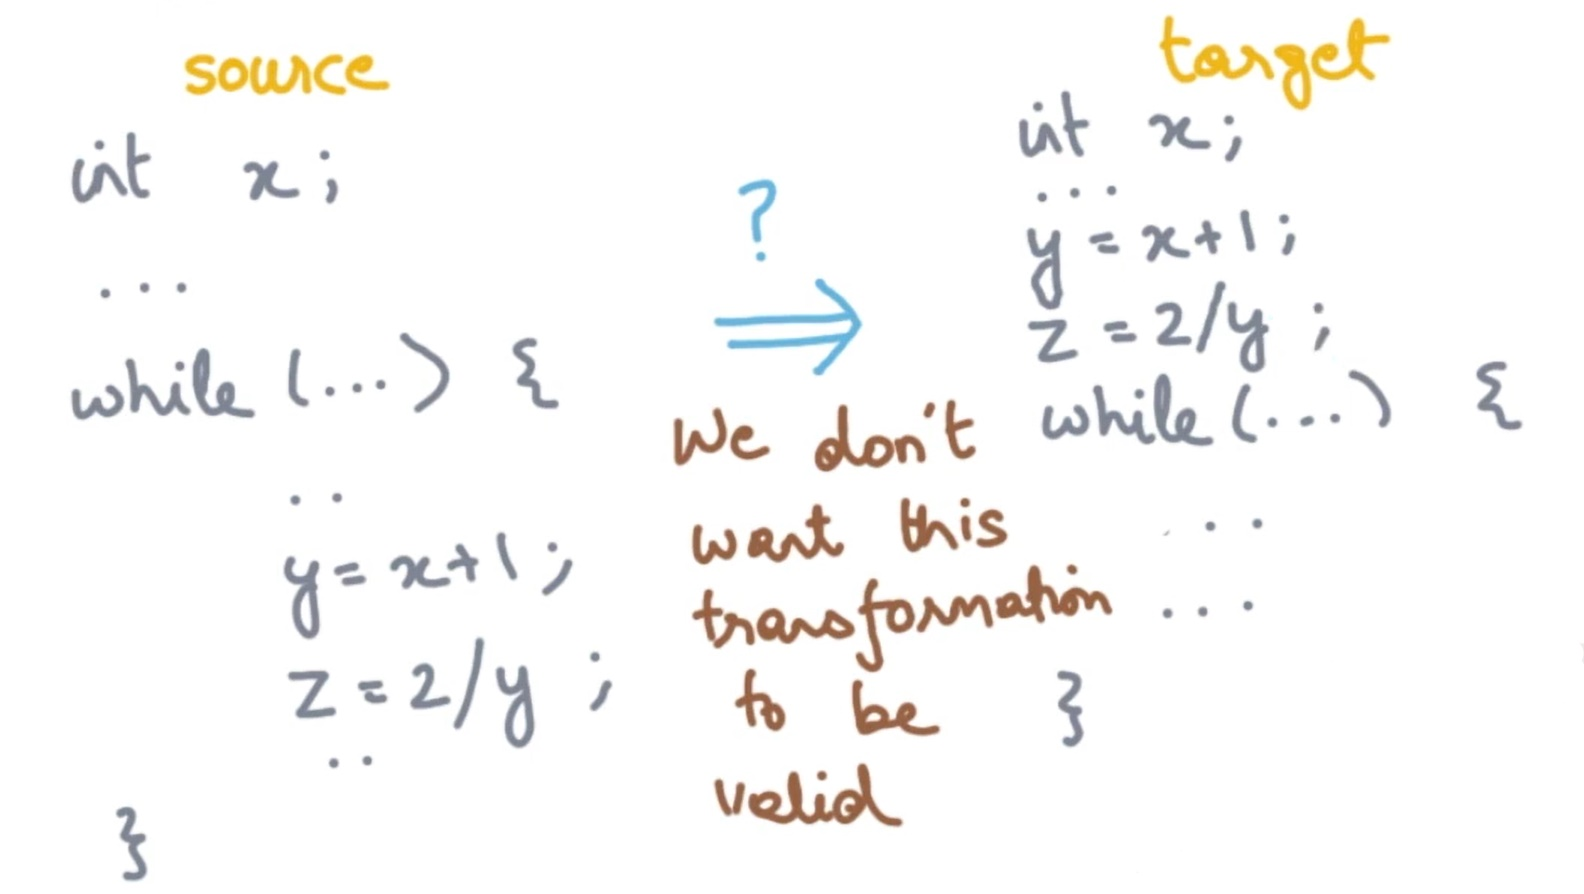 source
int x;
...
while (...) {
..
y = x+1;
z = 2/y ;
..
}
?
We don't
want this
transformation
to be
valid
target
int x;
...
y = x+1;
z = 2/y ;
while (...) {
...
...
}